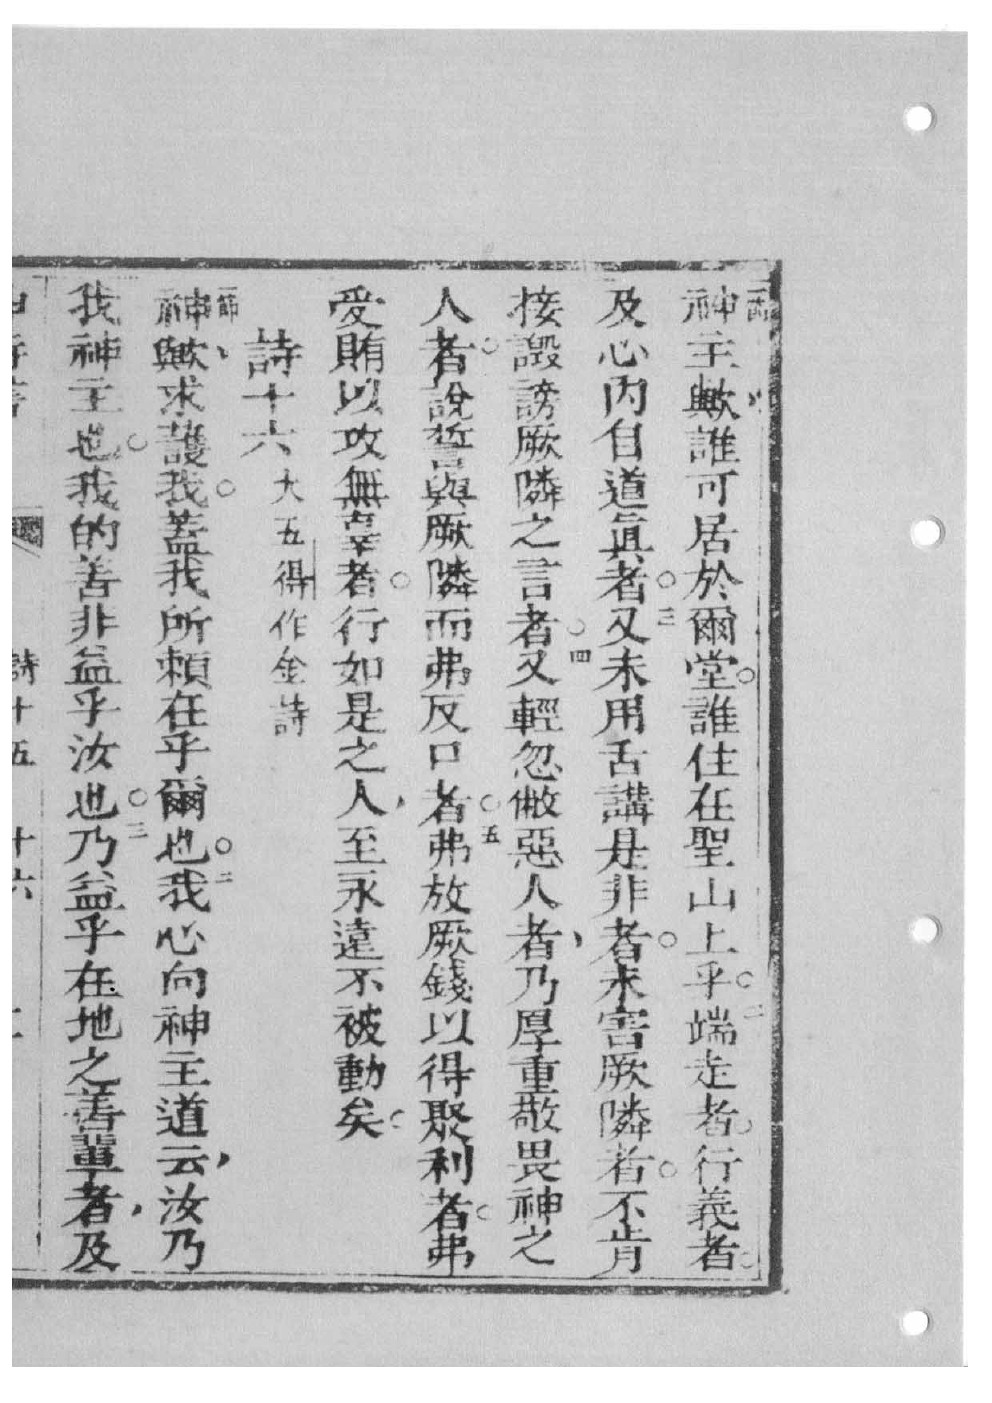 神主歟誰可居於爾堂誰住在聖山上乎二端走者行義者
及心內自道眞者三又未用舌講是非者未害厥隣者不肯
接譭謗厥隣之言者四又輕忽僘惡人者乃厚重敬畏神之
人者說誓與厥隣而弗反口者五弗放厥錢以得聚利者弗
受賄以攻無辜者行如是之人至永遠不被動矣
詩十六 大五得作金詩
節神歟求護我蓋我所賴在乎爾也二我心向神主道云汝乃
我神主也我的善非益乎汝也三乃益乎在地之善輩者及
詩十五 十六 二